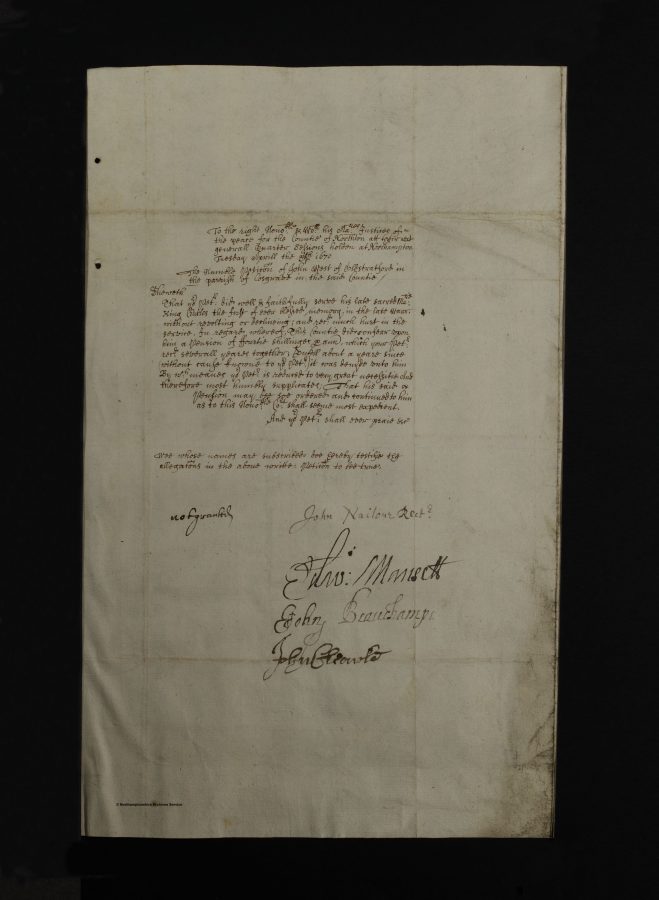 To the right Hono:ble & Wor:ll his Ma:ties Justices of
the peace for the Countie of Northton att their
generall Quarter Sessions holden at Northampton
Tuesday Aprill the 1670
The Humble Petition of John West of Oldstratford in
the parish of Cosgrave in the said Countie
Sheweth
That yo:r Pet:r did well & faithfully serve his late sacred Ma:tie
King Charles the first of ever blessed memory, in the late warr,
without revolting or declining, and rec:d much hurt in the
service. In regard whereof, this Countie did conferr upon
him a Pension of fourtie shillinges p ann, which your Pet:r
rec:d severall yeares together; Untill about a yeare since
without cause knowne to yo:r Pet:r it was denyde unto him
By w:ch meanes yo:r Pet:r is reduced to very great necessitie and
therefore most humbly supplicates, That his said
Pension may bee ordered and continued to him
as to this Hono:ble Co:rt shall seeme most expedient.
And yo:r Pet:r shall ever praie &c
Wee whose names are subscribed doe hereby testifie the
allegations in the above written Petition to bee true.
not granted
John Nailour Rect:r
Edw: Mansell
John Beauchampe
John Clearke
© Northamptonshire Archives Service